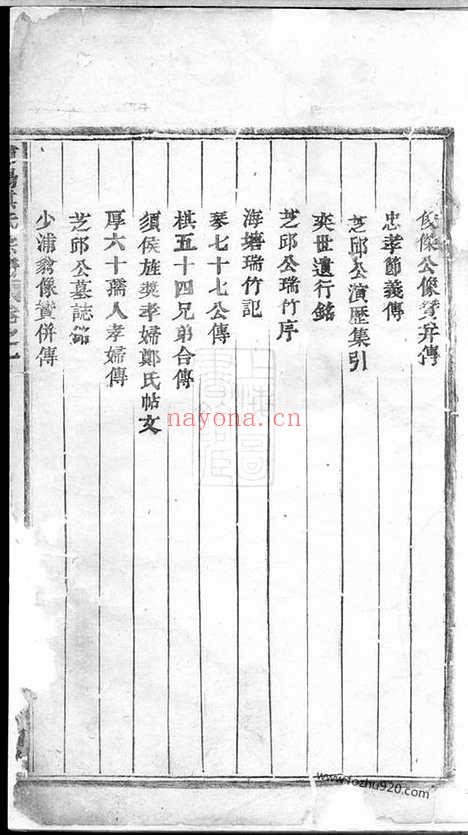 俊傑公像贊并傳
忠孝節義傳
芝邱公演歷集引
奕世遺行銘
芝邱公瑞竹序
海嶠瑞竹記
琴七十七公傳
棋五十四兄弟合傳
須侯旌獎孝婦鄭氏帖文
厚六十孺人孝婦傳
芝邱公墓誌銘
少浦翁像贊併傳
nayona.cn
www.fozhu920.com